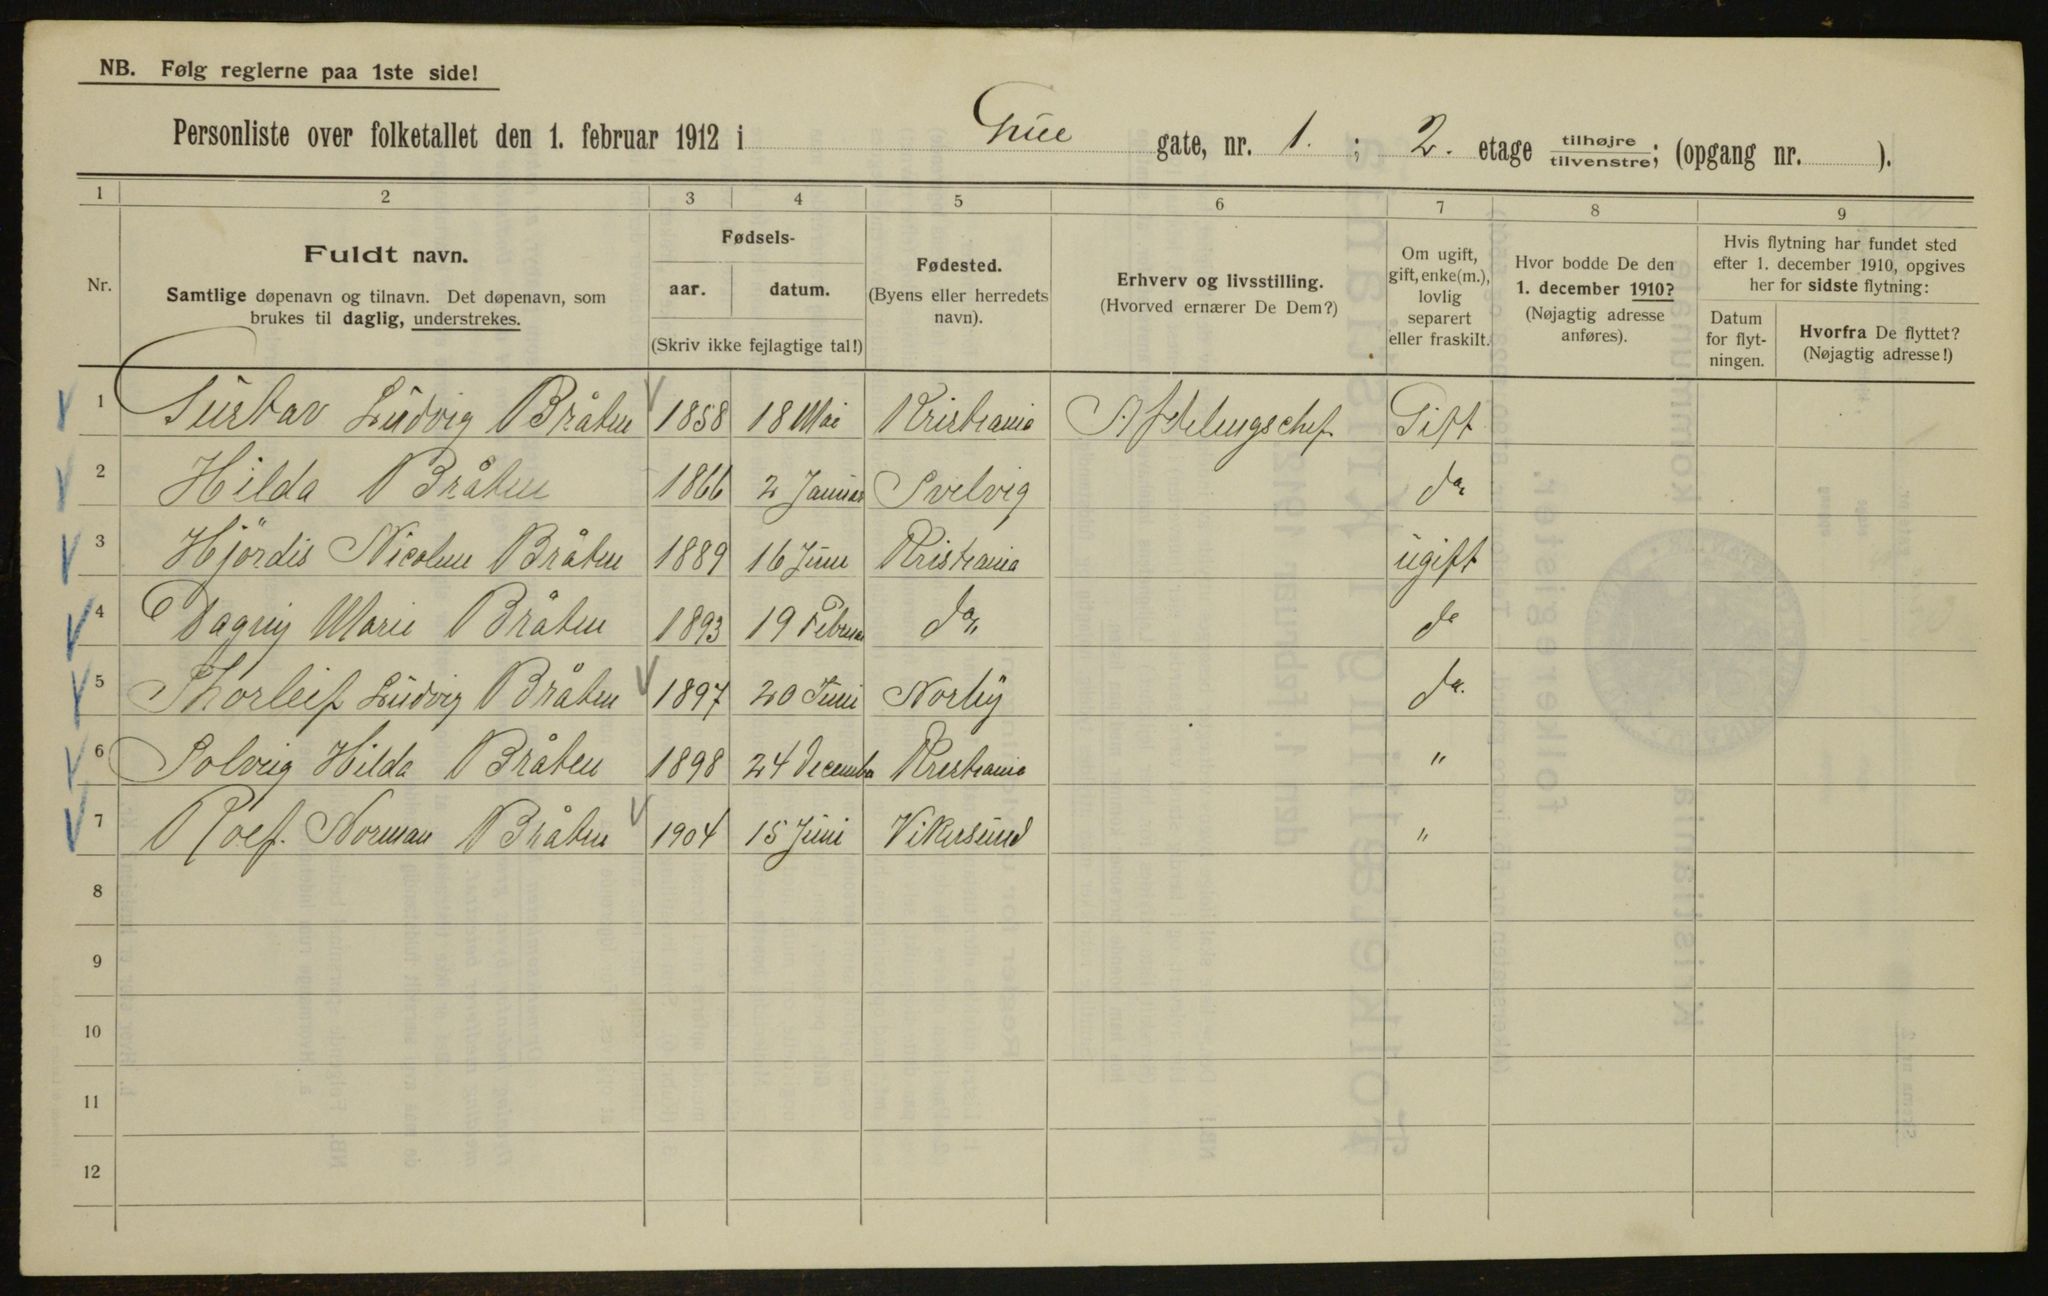 NB. Følg reglerne paa 1ste side!
Personliste over folketallet den 1. februar 1912 i Grüe gate, nr. 1. ; 2. etage tilhøjre tilvenstre; (opgang nr. ).
1 2 3 4 5 6 7 8 9
Nr.
Fuldt navn.
Samtlige døpenavn og tilnavn. Det døpenavn, som
brukes til daglig, understrekes.
Fødsels-
aar. datum.
(Skriv ikke fejlagtige tal!)
Fødested.
(Byens eller herredets
navn).
Erhverv og livsstilling.
(Hvorved ernærer De Dem?)
Om ugift,
gift, enke(m.),
lovlig
separert
eller fraskilt.
Hvor bodde De den
1. december 1910?
(Nøjagtig adresse
anføres).
Hvis flytning har fundet sted
efter 1. december 1910, opgives
her for sidste flytning:
Datum
for flyt-
ningen.
Hvorfra De flyttet?
(Nøjagtig adresse!)
1 Gustav Ludvig Bråten 1858 18 Mai Kristiania Afdelingschef Gift
2 Hilda Bråten 1866 2 Januar Svelvig do
3 Hjördis Nicoline Bråten 1889 16 Juni Kristiania ugift
4 Dagny Marie Bråten 1893 19 Februar do do
5 Thorleif Ludvig Bråten 1897 20 Juni do.
6 Solveig Hilda Bråten 1898 24 December Kristiania "
7 Rolf Norman Bråten 1904 15 Juni Vikersund "
8
9
10
11
12